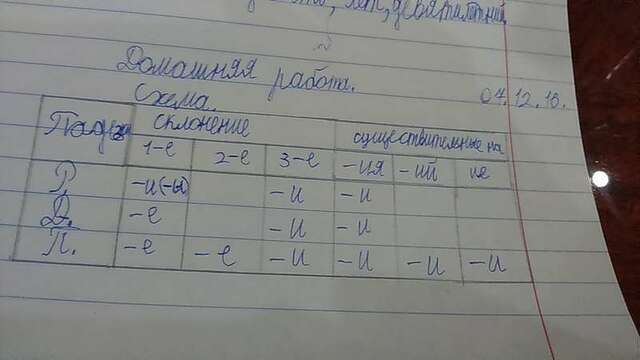 Домашняя работа.
04.12.18.
Схема.
Падеж склонение существительные на
1-е 2-е 3-е -ия -ий ие
Р -и(-ы) -и -и
Д. -е -и -и
П. -е -е -и -и -и -и